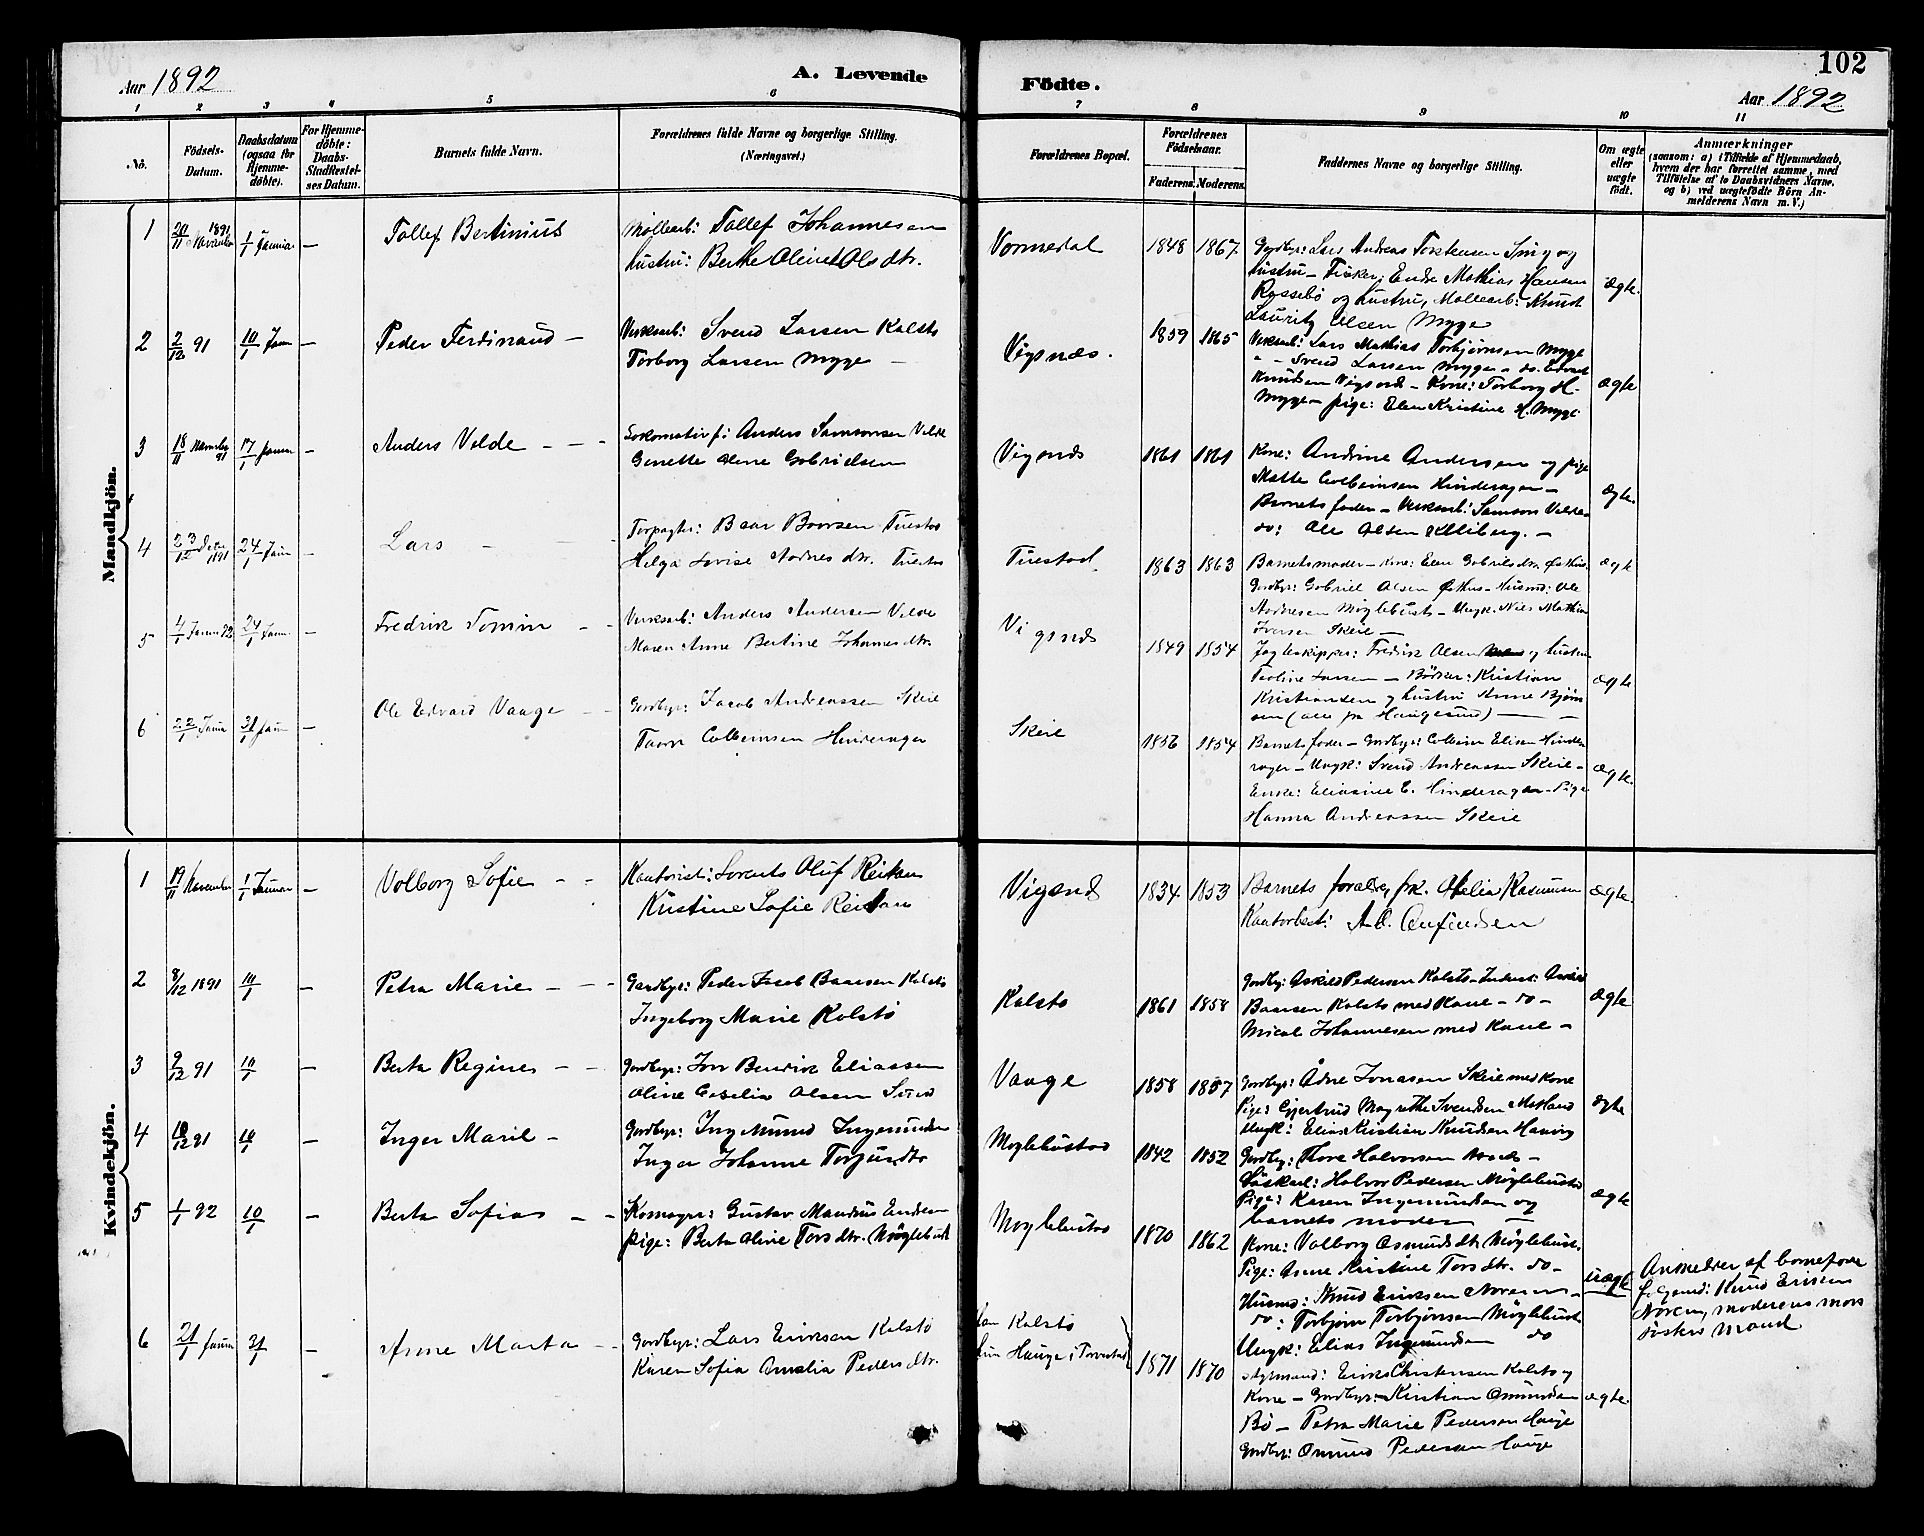 102
Aar 1892
A. Levende
Födte.
Aar 1892
1
2
3
4
5
6
7
8
9
10
11
No.
Födsels-
Datum.
Daabsdatum
(ogsaa for
Hjemme-
döbte).
For Hjemme-
döbte:
Daabs-
Stadfæstel-
ses Datum.
Barnets fulde Navn.
Forældrenes fulde Navne og borgerlige Stilling.
(Næringsvei.)
Forældrenes Bopæl.
Forældrenes
Födselsaar.
Faderens.
Moderens.
Faddernes Navne og borgerlige Stilling.
Om ægte
eller
uægte
födt.
Anmærkninger
(saasom: a) i Tilfælde af Hjemmedaab,
hvem der har forrettet samme, med
Tilföielse af to Daabsvidners Navne,
og b) ved uægtefödte Börn An-
melderens Navn m. V.)
Mandkjön.
1
20/11 1891 November
1/1 Januar
—
Tollef Bertinius
Møllearb: Tollef Johannesen
hustru: Berthe Oline Olsdtr.
Vormedal
1848
1867
Gordbr: Lars Andreas Torstensen og
hustru – Fisker: Endre Mathias Hansen
og hustru, Møllearb: Knud
Lauritz Olsen Myge
Ægte.
2
2/12 91
10/1 Jan
—
Peder Ferdinand —
Verksarb: Svend Larsen Kalstø
Torborg Larsen Myge —
Vigsnæs.
1859
1865
Verksarb: Lars Mathias Torbjørnsen Myge
" – Svend Larsen Myge – do.
Knudsen Vigsnæs – Kone: Torborg H.
Myge – pige: Elen Kristine H. Myge
ægte
3
18/11 Novembr 91
17/1 Janu
—
Anders Velde — — —
Lokomotivf: Anders Samsonsen Velde
Genette Oline Gabrielsen
Vigsnæs
1861
1861
Kone: Andrine Andersen og pige
Colbeinsen Hinderager —
Barnets fader – Verksarb: Samson Velde
do: Ole Olsen —
Ægte.
4
23/12 Decbr 1891
24/1 Jan
—
Lars —
Baar Baarsen Tuestad
Helga Lovise Aadnesdtr. Tuestad
Tuestad
1863
1863
Barnets moder – Kone: Elen Gabrielsdtr. Østhus
Gordbr: Gabriel Olsen Østhus – Husmd: Ole
Aadnesen Møglebust – Ungk: Niels Mathias
Iversen Skeie —
ægte
5
4/1 Janu 92
24/1 Janu.
—
Fredrik Tomin — —
Verksarb: Anders Andersen Velde
Maren Anne Bertine Johannesdtr.
Vigsnæs
1849
1854
Jagteskipper: Fredrik Olsen og hustru
Pauline Larsen – Bødker: Kristian
Kristiansen og hustru Anne Bjørn
sen (alle fra Haugesund) — —
ægte
6
22/1 Janu
31/1 Janu
—
Ole Edvard Vaage — —
Gordbr: Jacob Andreassen Skeie
Colbeinsen Hinderager
Skeie
1856
1854
Barnets fader – Gordbr: Colbein Elisen Hinde
rager – Ungk: Svend Andreassen Skeie –
Enke: Eliasine C. Hinderager – Pige
Hanna Andreassen Skeie
ægte.
Kvindekjön.
1
19/11 November
1/1 Januar
—
Valborg Sofie — —
Kontorist: Lorents Oluf Reitan
Kristine Sofie Reitan
Vigsnæs
1834.
1853
Barnets forældre, frk. Rasmusen
Kontorbest: A. C. Anfindsen
ægte.
2
8/12 1891
10/1
—
Petra Marie — — —
Gardbr: Peder Jacob Baarsen Kalstø
Ingeborg Marie Kolstø
Kalstø
1861
1858
Gordbr: Askild Pedersen Kalstø –
Baarsen Kalstø med Kone – do –
Mical Johannesen med Kone –
Ægte
3
9/12 91
10/1
—
Berta Regine — —
Gordbr: Jon Benrik Eliassen
Oline Cecelia Olsen
Vaage
1858
1857
Gordbr: Ådne Jonasen Skeie med Kone
Pige: Gjertrud Magrethe Svendsen Matland
Ungk: Elias Kristian Knudsen
ægte
4
10/12 91
10/1
—
Inger Marie —
Gordbr: Ingemund Ingemundsen
Inger Johanne Torjusdtr.
Moglebustad
1842
1852
Gordbr: Thore Halvorsen —
Halvor Pedersen Møglebustad
Pige: Karen Ingemundsen og
barnets moder —
ægte
5
1/1 92
10/1
—
Berta Sofia — —
Skomager: Gustav Mandius Andersen
pige: Berta Oline Torsdtr. Møglebust
Moglebustad
1870
1862
Kone: Valborg Osmundsdtr. Møglebust
Pige: Anne Kristine Torsdtr. do –
Husmd: Knud Eriksen —
do: Torbjørn Torbjørnsen Møglebust
Ungk: Elias Ingemundsen do
uægte
Anmelder af barnefader
følgende: Knud Eriksen
moderens mors
søsters mand
6
21/1 Janu
31/1
—
Anne Marta — —
Gordbr: Lars Eriksen Kalstø
Karen Sofia Amalia Pedersdtr.
Kalstø
Hauge i Torvestad
1871
1870
Erik Christensen Kalstø og
Kone – Gordbr: Kristian Osmundsen
Bø – Petra Marie Pedersen Hauge
Gordbr: Osmund Pedersen Hauge
ægte.